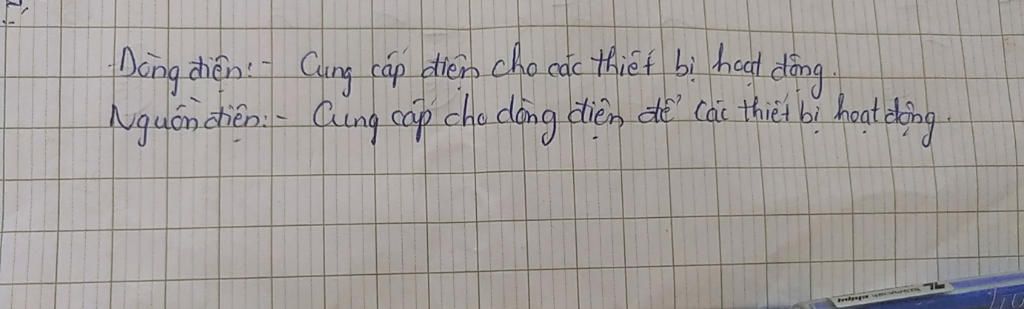 Dòng điện:- Cung cấp điện cho các thiết bị hoạt động.
Nguồn điện:- Cung cấp cho dòng điện để các thiết bị hoạt động.
TL